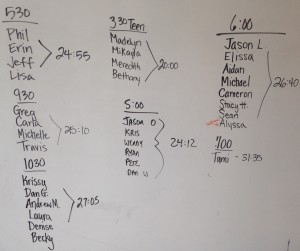 530
Phil
Erin
Jeff
Lisa
24:55
930
Greg
Carla
Michelle
Travis
25:10
1030
Krissy
Dan G.
Andrew M.
Laura
Denise
Becky
27:05
330 Teen
Madelyn
Mikayla
Meredith
Bethany
20:00
5:00
Jason O
Kris
Wendy
Ryan
Pete
Dan W
24:12
6:00
Jason L.
Elissa
Aidan
Michael
Cameron
Stacy H.
Sean
Alyssa
26:40
700
Tami - 31:35